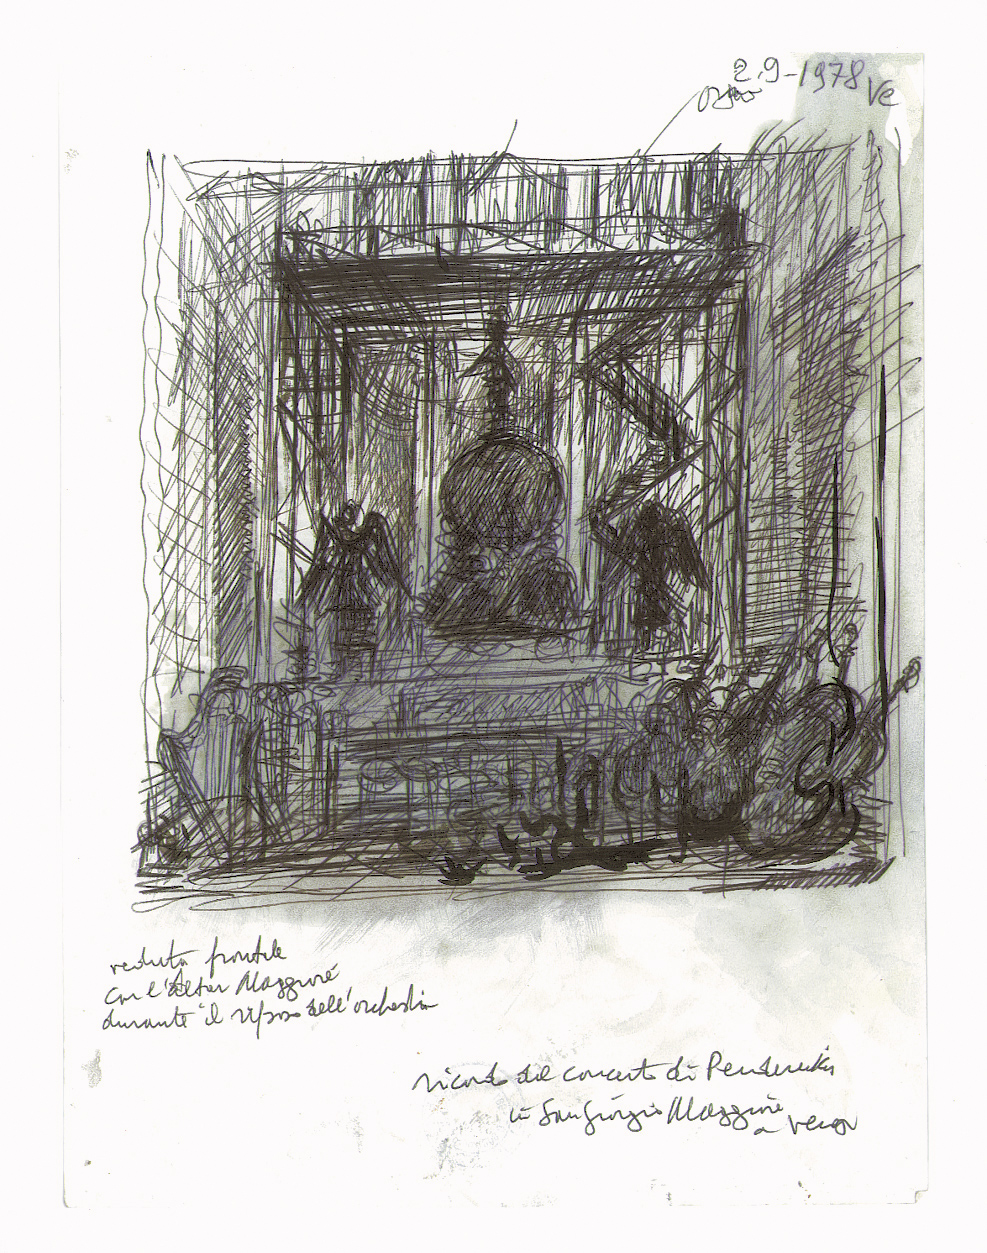 2.9-1978 Ve
veduta frontale
con l'Altar Maggiore
durante il riposo dell'orchestra
ricordo del concerto di Penderecki
in San Giorgio Maggiore
a